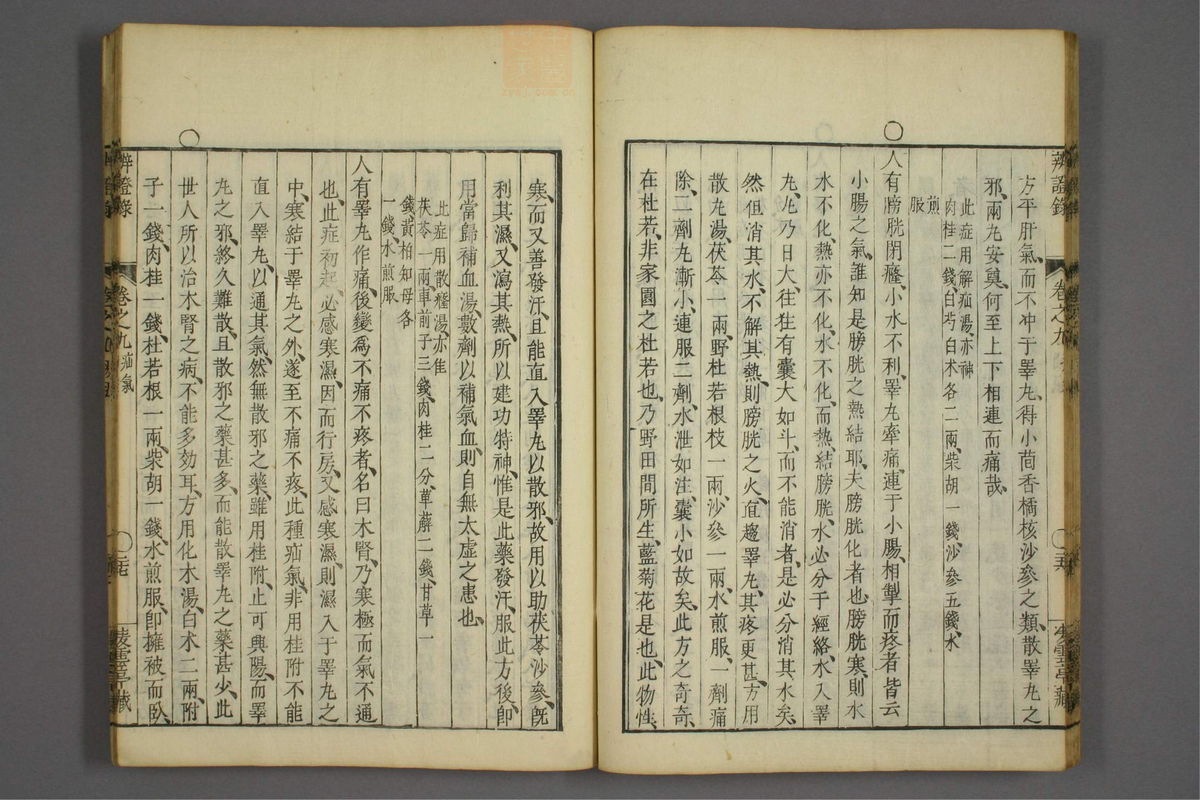 辨證錄
卷之九
方平肝氣而不冲于睪丸得小茴香橘核沙參之類散睪丸之
邪兩丸安奠何至上下相連而痛哉
此症用解疝湯亦神
肉桂二錢白芍白术各二兩柴胡一錢沙參五錢水
煎
服
人有膀胱閉癃小水不利睪丸牽痛連于小腸相掣而疼者皆云
小腸之氣誰知是膀胱之熱結耶夫膀胱化者也膀胱寒則水
水不化熱亦不化水不化而熱結膀胱水必分于經絡水入睪
丸丸乃日大往往有囊大如斗而不能消者是必分消其水矣
然但消其水不解其熱則膀胱之火直趨睪丸其疼更甚方用
散丸湯茯苓一兩野杜若根枝一兩沙參一兩水煎服一劑痛
除二劑丸漸小連服二劑水泄如注囊小如故矣此方之奇奇
在杜若非家園之杜若也乃野田間所生藍菊花是也此物性
寒而又善發汗且能直入睪丸以散邪故用以助茯苓沙參旣
利其濕又瀉其熱所以建功特神惟是此藥發汗服此方後卽
用當歸補血湯數劑以補氣血則自無太虛之患也
此症用散癃湯亦佳
茯苓一兩車前子三錢肉桂二分萆薢二錢甘草一
錢黃柏知母各
一錢水煎服
人有睪丸作痛後變爲不痛不疼者名曰木腎乃寒極而氣不通
也此症初起必感寒濕因而行房又感寒濕則濕入于睪丸之
中寒結于睪丸之外遂至不痛不疼此種疝氣非用桂附不能
直入睪丸以通其氣然無散邪之藥雖用桂附止可興陽而睪
丸之邪終久難散且散邪之藥甚多而能散睪丸之藥甚少此
世人所以治木腎之病不能多効耳方用化木湯白术二兩附
子一錢肉桂一錢杜若根一兩柴胡一錢水煎服卽擁被而臥
辨證錄
卷之九疝氣